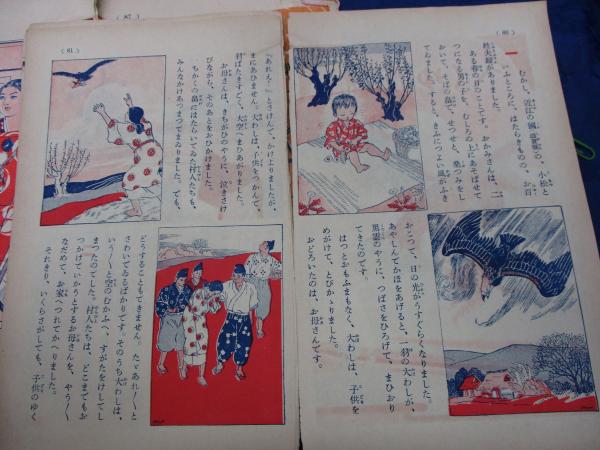 (80)
一
むかし、近江の國志賀の、小松と
いふところに、はたらきものの、お百
姓夫婦がありました。
ある春の日のことです。おかみさんは、二
つになる男の子を、むしろの上にあそばせて
おいて、そばの畠で、せつせと、桑つみをし
てゐました。すると、きふにつよい風がふき
おこつて、日の光がうすぐらくなりました。
あやしんでかほをあげると、一羽の大わしが、
黒雲のやうに、つばさをひろげて、まひおり
てきたのです。
はつとおもふまもなく、大わしは、子供を
めがけて、とびかゝりました。
おどろいたのは、お母さんです。
(81)
「あれえ！」とさけんで、かけよりましたが、
まにあひません。大わしは、子供をつかんで、
羽ばたきすごく、大空へまひあがりました。
お母さんは、きちがひのやうに、泣きさけ
びながら、そのあとをおひかけました。
ちかくの畠にはたらいてゐた村人たちも、
みんなかけあつまつてまゐりました。でも、
どうすることもできません。たゞあれ〳〵と
さわいでゐるばかりです。そのうち大わしは、
いう〳〵と空のむかふへ、すがたをけしてし
まつたのでした。村人たちは、どこまでもお
つかけていかうとするお母さんを、やう〳〵
なだめて、お家へつれてかへりました。
それきり、いくらさがしても、子供のゆく